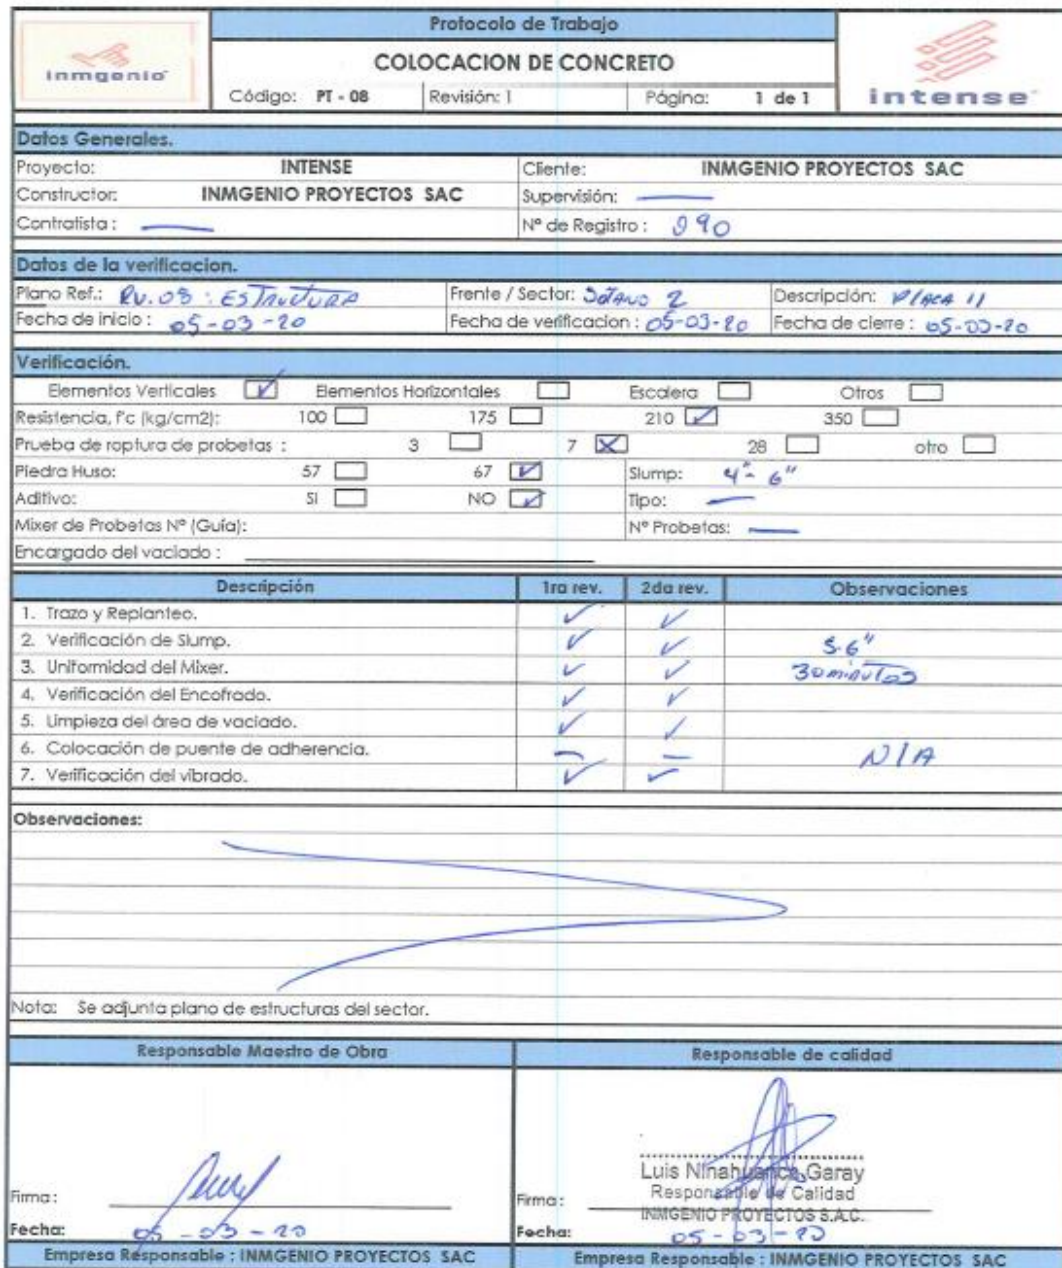 Protocolo de Trabajo
inmgenio
COLOCACION DE CONCRETO
intense
Código: PT - 08 Revisión: 1 Página: 1 de 1
Datos Generales.
Proyecto: INTENSE Cliente: INMGENIO PROYECTOS SAC
Constructor: INMGENIO PROYECTOS SAC Supervisión:
Contratista : Nº de Registro : 990
Datos de la verificacion.
Plano Ref.: RV.08 : ESTRUCTURA Frente / Sector: SOTANO 2 Descripción: PLACA 11
Fecha de inicio : 05-03-20 Fecha de verificacion : 05-03-20 Fecha de cierre : 05-03-20
Verificación.
Elementos Verticales Elementos Horizontales Escalera Otros
Resistencia, f'c (kg/cm2): 100 175 210 350
Prueba de roptura de probetas : 3 7 28 otro
Piedra Huso: 57 67 Slump: 4"- 6"
Aditivo: SI NO Tipo:
Mixer de Probetas Nº (Guía): Nº Probetas:
Encargado del vaciado :
Descripción 1ra rev. 2da rev. Observaciones
1. Trazo y Replanteo. ✓ ✓
2. Verificación de Slump. ✓ ✓ 5-6"
3. Uniformidad del Mixer. ✓ ✓ 30 minutos
4. Verificación del Encofrado. ✓ ✓
5. Limpieza del área de vaciado. ✓ ✓
6. Colocación de puente de adherencia. – – N/A
7. Verificación del vibrado. ✓ ✓
Observaciones:
Nota: Se adjunta plano de estructuras del sector.
Responsable Maestro de Obra Responsable de calidad
Luis Ninahuanca Garay
Responsable de Calidad
INMGENIO PROYECTOS S.A.C.
Firma : Firma :
Fecha: 05-03-20 Fecha: 05-03-20
Empresa Responsable : INMGENIO PROYECTOS SAC Empresa Responsable : INMGENIO PROYECTOS SAC